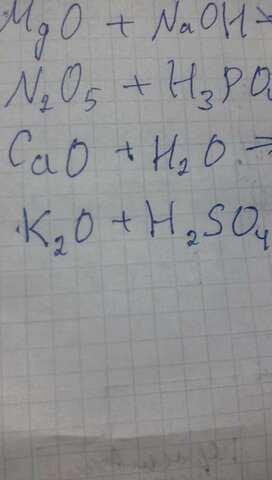 MgO + NaOH →
N₂O₅ + H₃PO
CaO + H₂O →
K₂O + H₂SO₄